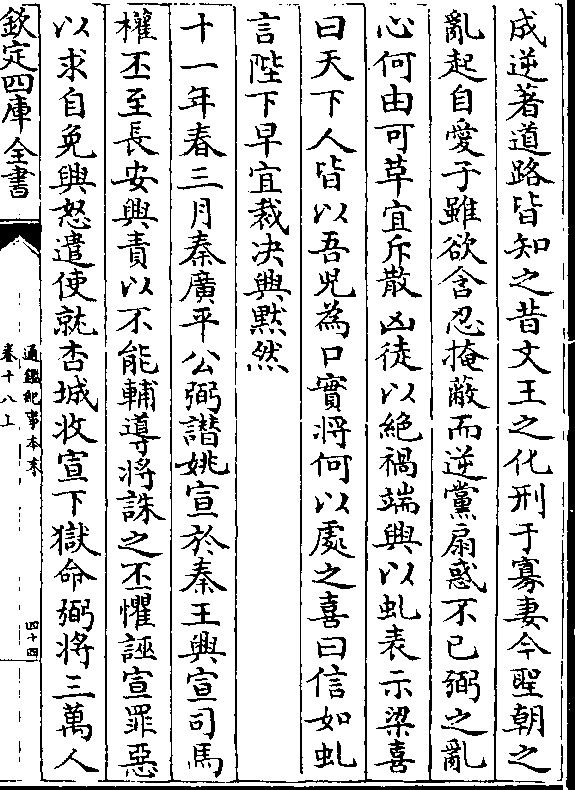 成逆著道路皆知之昔文王之化刑于寡妻今聖朝之
亂起自愛子雖欲含忍掩蔽而逆黨扇惑不已弼之亂
心何由可革宜斥散凶徒以絶禍端興以虬表示梁喜
曰天下人皆以吾兒為口實將何以處之喜曰信如虬
言陛下早宜裁决興黙然
十一年春三月秦廣平公弼譖姚宣於秦王興宣司馬
權丕至長安興責以不能輔導將誅之丕懼誣宣罪惡
以求自免興怒遣使就杏城收宣下獄命弼將三萬人
欽定四庫全書
通鑑紀事本末
卷十八上
四十四